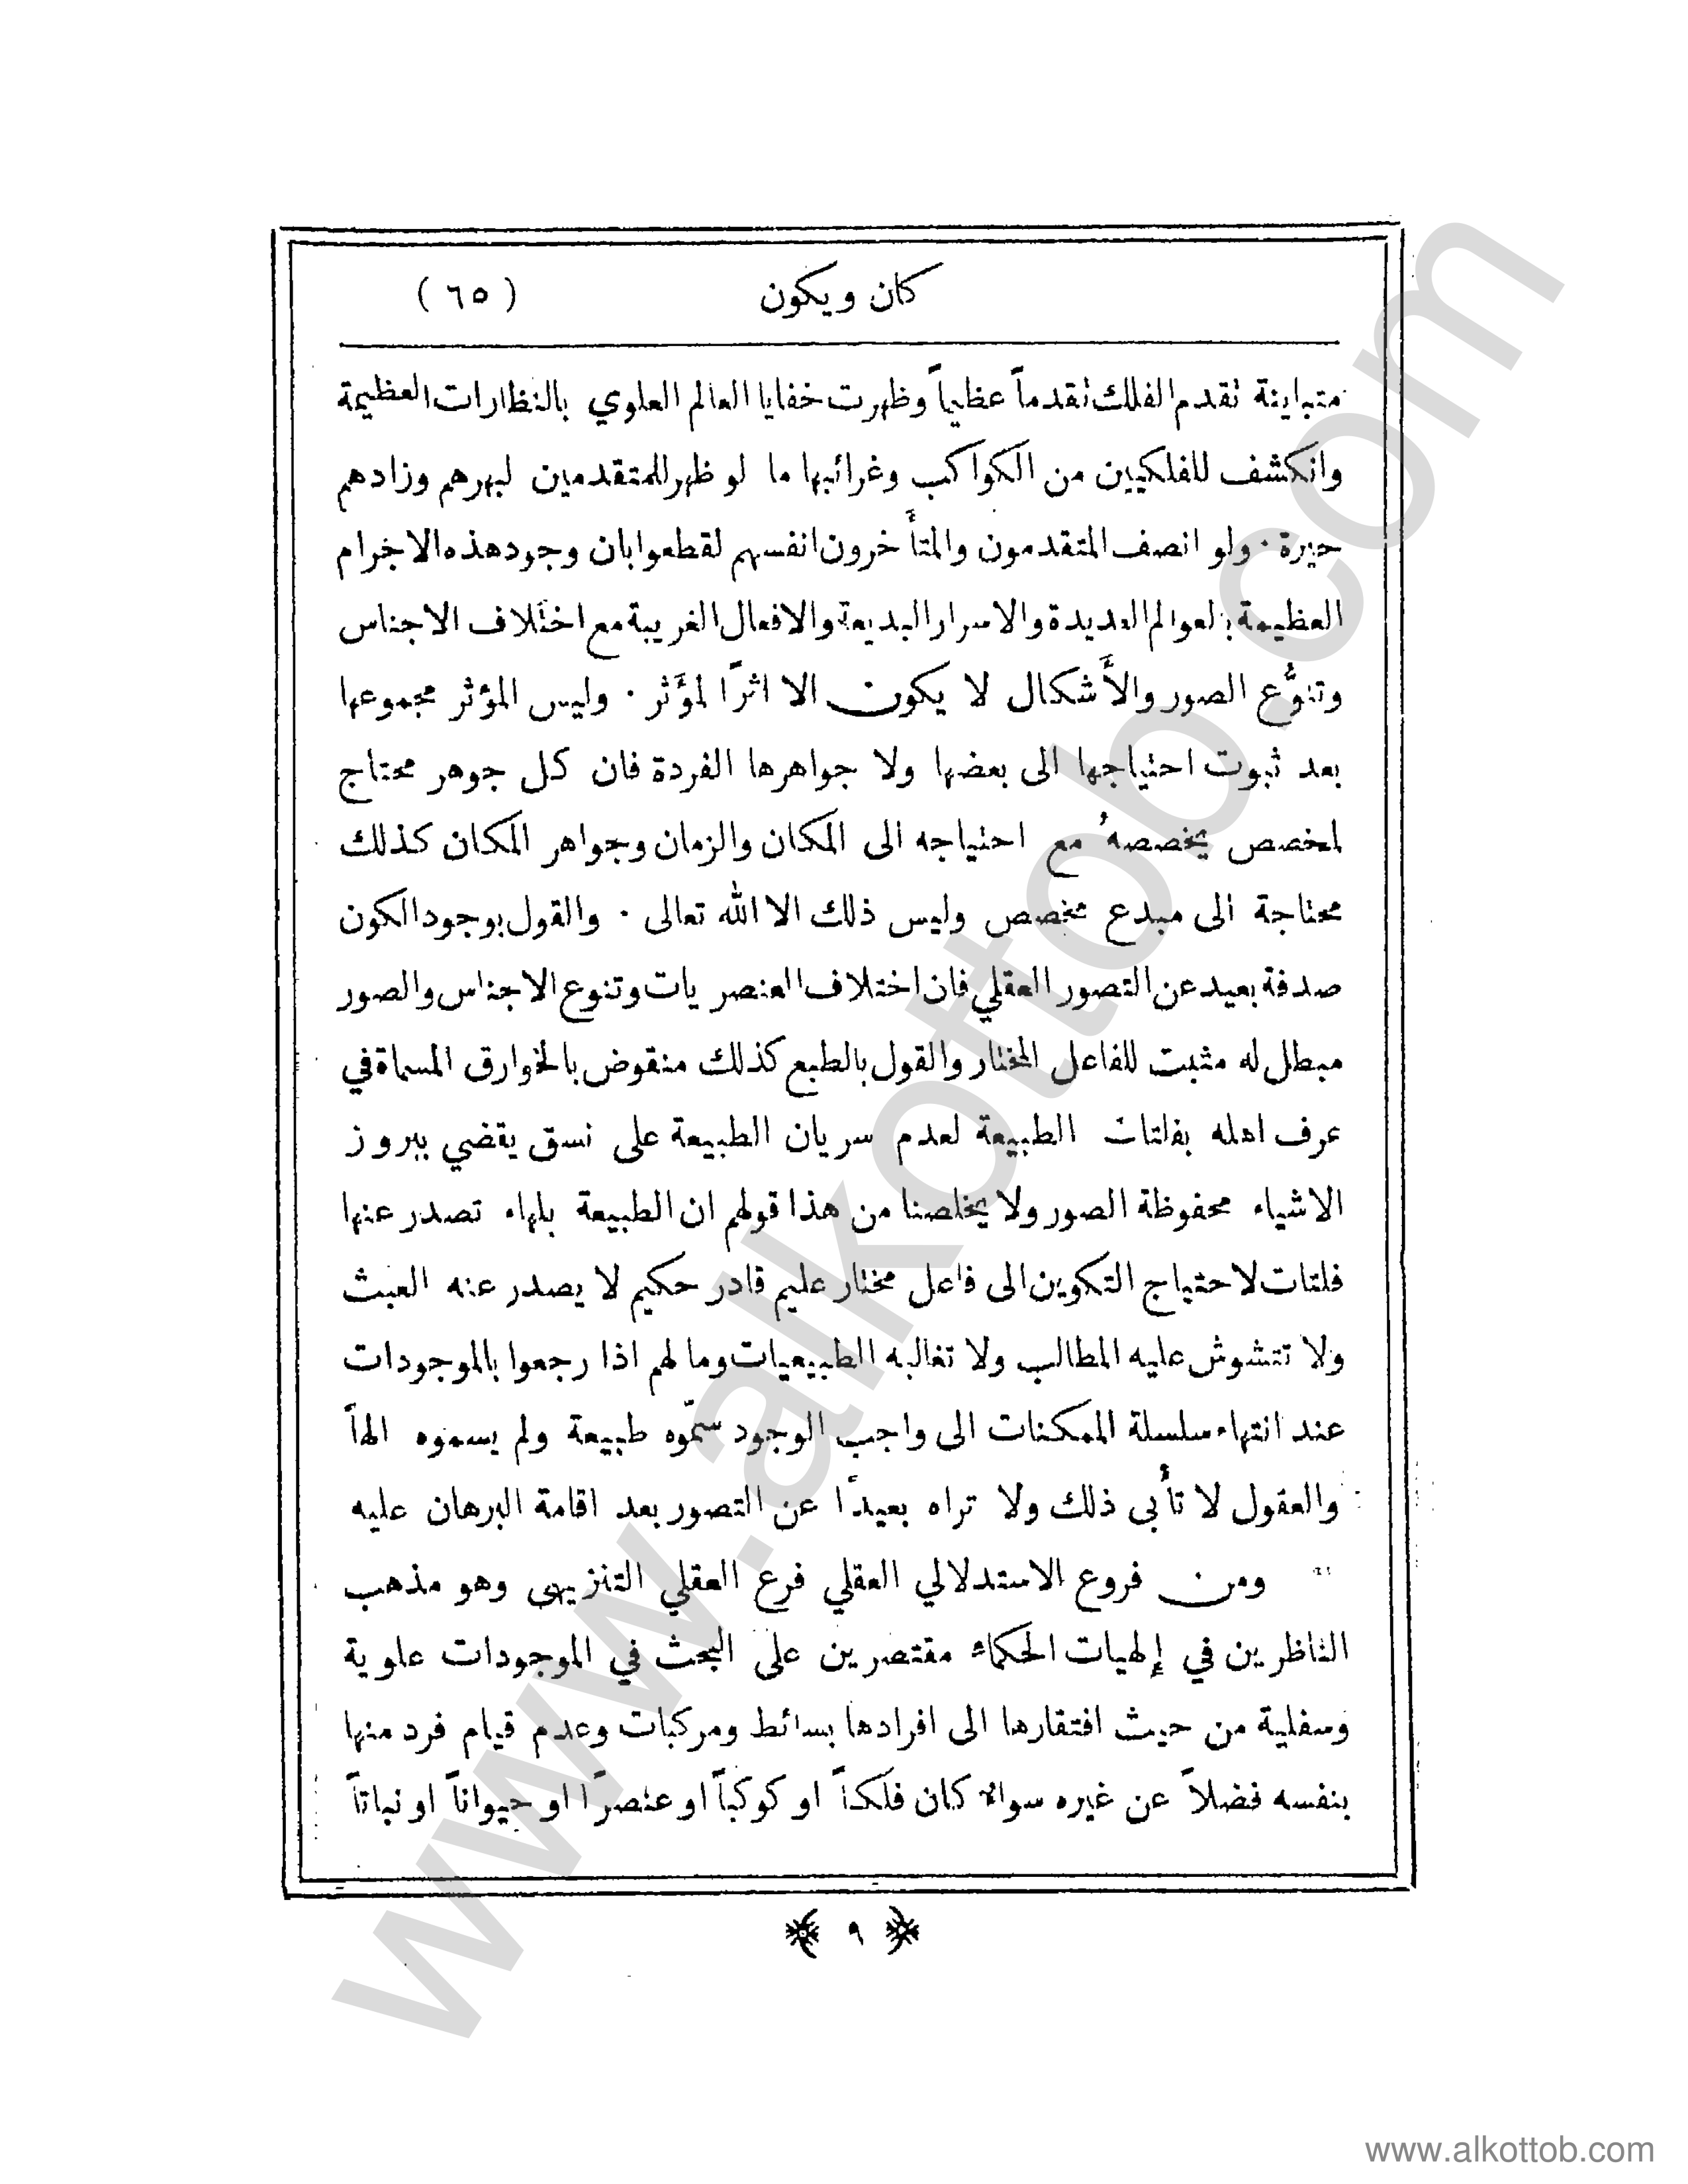 كان ويكون (٦٥)
متباينة تقدم الفلك تقدماً عظيماً وظهرت خفايا العالم العلوي بالنظارات العظيمة
وانكشف للفلكيين من الكواكب وغرائبها ما لو ظهر للمتقدمين لبهرهم وزادهم
حيرة · ولو انصف المتقدمون والمتأخرون انفسهم لقطعوا بان وجود هذه الاجرام
العظيمة بالعوالم العديدة والاسرار البديعة والافعال الغريبة مع اختلاف الاجناس
وتنوُّع الصور والأَشكال لا يكون الا اثرًا لمؤَثر · وليس المؤثر مجموعها
بعد ثبوت احتياجها الى بعضها ولا جواهرها الفردة فان كل جوهر محتاج
لمخصص يخصصهُ مع احتياجه الى المكان والزمان وجواهر المكان كذلك
محتاجة الى مبدع مخصص وليس ذلك الا الله تعالى · والقول بوجود الكون
صدفة بعيد عن التصور العقلي فان اختلاف العنصريات وتنوع الاجناس والصور
مبطل له مثبت للفاعل المختار والقول بالطبع كذلك منقوض بالخوارق المسماة في
عرف اهله بفلتات الطبيعة لعدم سريان الطبيعة على نسق يقضي ببروز
الاشياء محفوظة الصور ولا يخلصنا من هذا قولهم ان الطبيعة بلهاء تصدر عنها
فلتات لاحتياج التكوين الى فاعل مختار عليم قادر حكيم لا يصدر عنه العبث
ولا تتشوش عليه المطالب ولا تغالبه الطبيعيات وما لهم اذا رجعوا بالموجودات
عند انتهاء سلسلة الممكنات الى واجب الوجود سمّوه طبيعة ولم يسموه الهاً
والعقول لا تأبى ذلك ولا تراه بعيدًا عن التصور بعد اقامة البرهان عليه
ومن فروع الاستدلالي العقلي فرع العقلي التنزيهى وهو مذهب
الناظرين في إلهيات الحكماء مقتصرين على البحث في الموجودات علوية
وسفلية من حيث افتقارها الى افرادها بسائط ومركبات وعدم قيام فرد منها
بنفسه فضلاً عن غيره سواء كان فلكاً او كوكباً او عنصرًا او حيواناً او نباتاً
﴿ ٩ ﴾
www.alkottob.com
www.alkottob.com